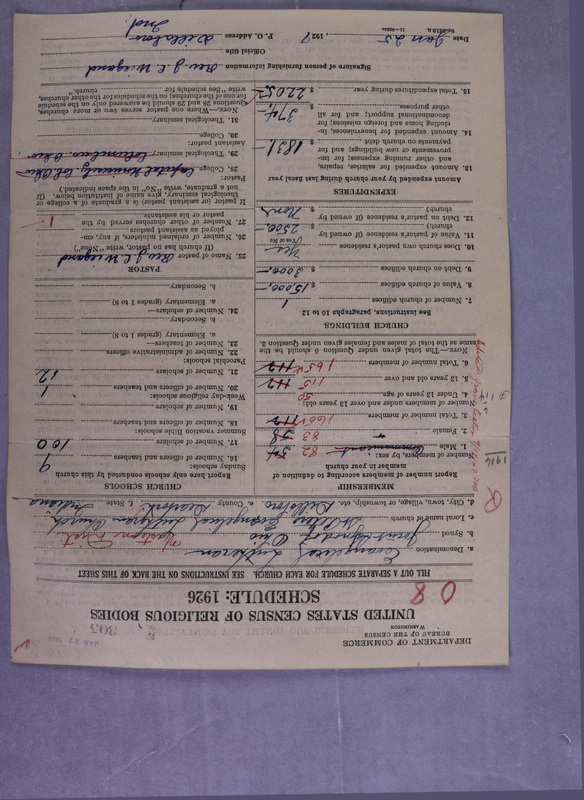 DEPARTMENT OF COMMERCE
BUREAU OF THE CENSUS
WASHINGTON
JAN 27 1927
305
UNITED STATES CENSUS OF RELIGIOUS BODIES
SCHEDULE: 1926
08
FILL OUT A SEPARATE SCHEDULE FOR EACH CHURCH. SEE INSTRUCTIONS ON THE BACK OF THIS SHEET
a. Denomination Evangelical Lutheran
b. Synod Joint Synod of Ohio Western Dist
c. Local name of church St Evangelical Lutheran Church
d. City, town, village, or township, etc. Dillsboro e. County Dearborn f. State Indiana
MEMBERSHIP
Report number of members according to definition of member in your church
Number of members, by sex: Communicant
1. Male 82 54
2. Female 83 58
3. Total number of members 165 112
Number of members under and over 13 years old:
4. Under 13 years of age 50
5. 13 years old and over 115 112
6. Total number of members 165 112
NOTE.—The total given under Question 6 should be the same as the total of males and females given under Question 3.
CHURCH BUILDINGS
See instructions, paragraphs 10 to 12
7. Number of church edifices 1
8. Value of church edifices $ 15000,-
9. Debt on church edifices $ 3000,-
10. Does church own pastor's residence Yes
(Yes or No)
11. Value of pastor's residence (if owned by church) $ 2500.-
12. Debt on pastor's residence (if owned by church) $ None
EXPENDITURES
Amount expended by your church during last fiscal year
13. Amount expended for salaries, repairs, and other running expenses; for improvements or new building; and for payments on church debt $ 1831.-
14. Amount expended for benevolences, including home and foreign missions; for denominational support; and for all other purposes. $ 374,-
15. Total expenditures during year $ 2205.-
CHURCH SCHOOLS
Report here only schools conducted by this church
Sunday schools:
16. Number of officers and teachers 9
17. Number of scholars 100
Summer vacation Bible schools:
18. Number of officers and teachers
19. Number of scholars
Week-day religious schools:
20. Number of officers and teachers 1
21. Number of scholars 12
Parochial schools:
22. Number of administrative officers
23. Number of teachers—
a. Elementary (grades 1 to 8)
b. Secondary
24. Number of scholars—
a. Elementary (grades 1 to 8)
b. Secondary
PASTOR
25. Name of pastor Rev J. C. Wiegand
(If church has no pastor, write "None")
26. Number of ordained ministers, if any, employed as assistant pastors
27. Number of other churches served by the pastor or his assistants. 1
If pastor (or assistant pastor) is a graduate of a college or theological seminary, give name of institution below. (If not a graduate, write "No" in the space indicated.)
Pastor:
28. College Capital University Col. Ohio
29. Theological seminary Columbus, Ohio
Assistant pastor:
30. College
31. Theological seminary
NOTE.—Where one pastor serves two or more churches, Questions 28 and 29 should be answered only on the schedule for one of the churches; on the schedules for the other churches, write "See schedule for church.
Signature of person furnishing information Rev. J. C. Wiegand
Official title
Date Jan 25, 1927 P. O. Address Dillsboro
Ind.
1916